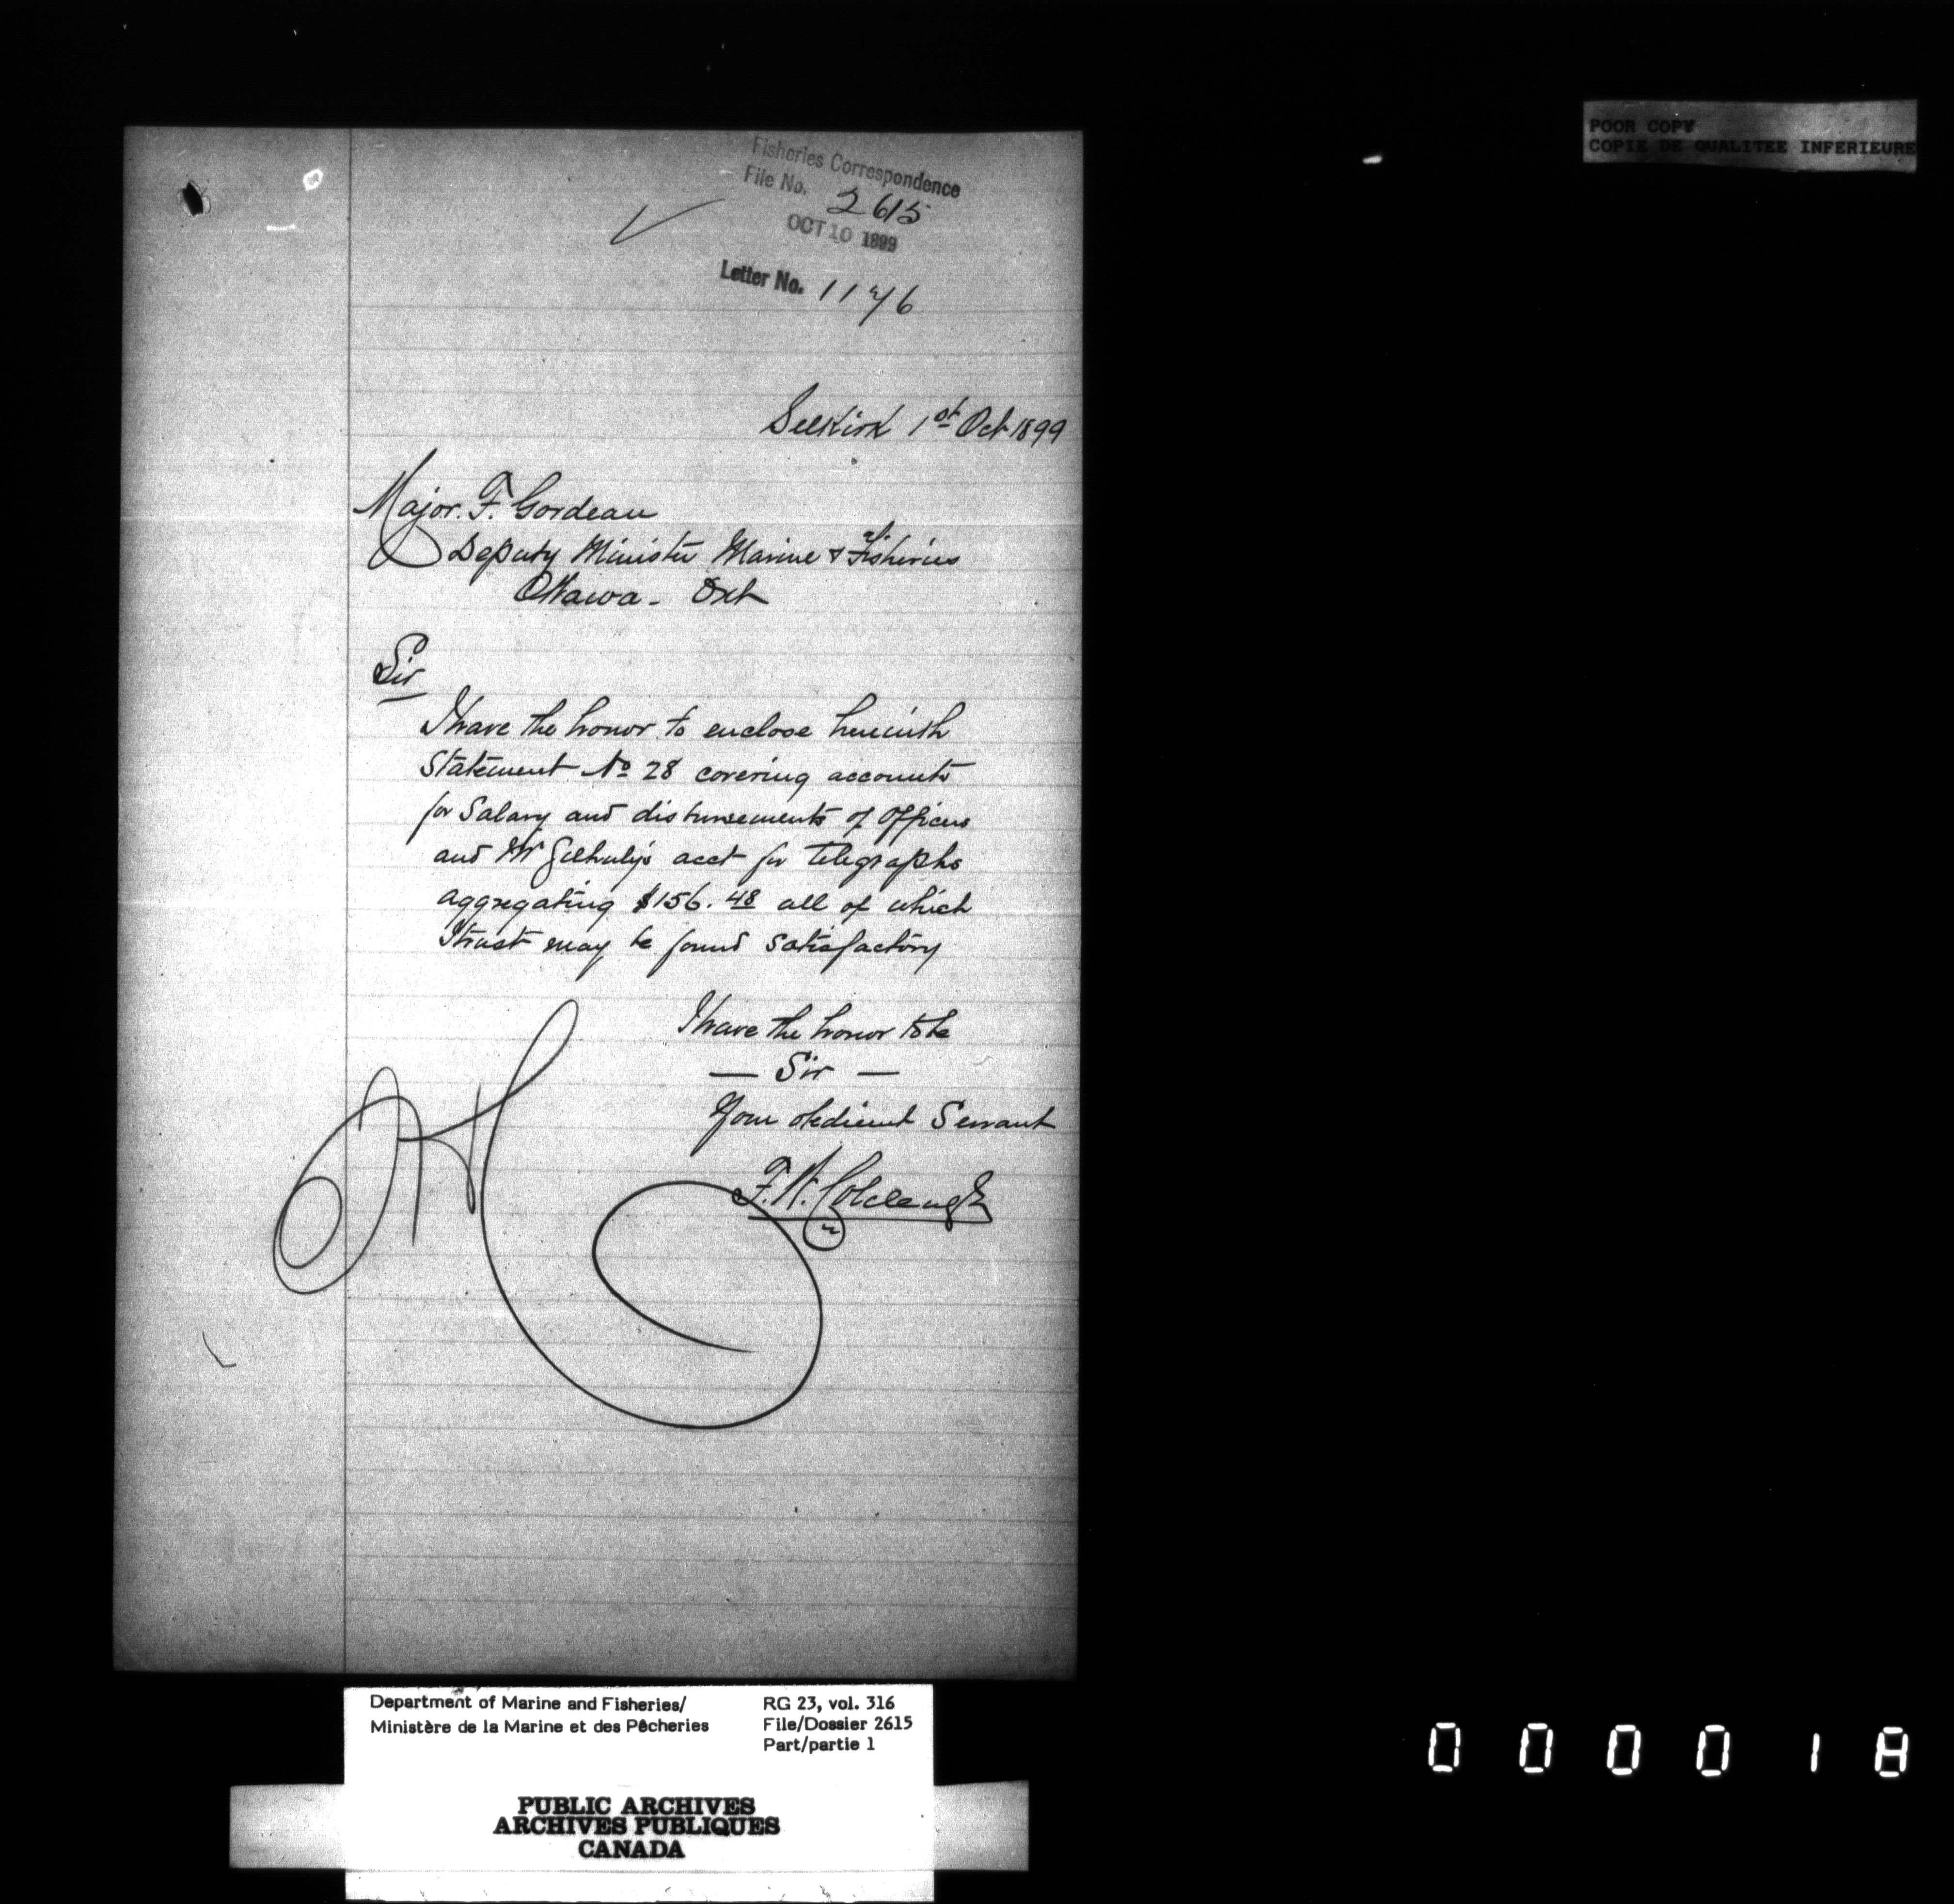 POOR COPY
COPIE DE QUALITEE INFERIEURE
Fisheries Correspondence
File No. 2615
OCT 10 1899
Letter No. 1176
Selkirk 1st Oct 1899
Major. F. Gordeau
Deputy Minister Marine & Fisheries
Ottawa - Ont
Sir
I have the honor to enclose herewith
Statement No 28 covering accounts
for Salary and disbursements of Officers
and Mr acct for Telegraphs
aggregating $156.48 all of which
I trust may be found satisfactory
I have the honor to be
— Sir —
Your obedient Servant
F.W. Colcleugh
Department of Marine and Fisheries/
Ministère de la Marine et des Pêcheries
RG 23, vol. 316
File/Dossier 2615
Part/partie 1
PUBLIC ARCHIVES
ARCHIVES PUBLIQUES
CANADA
000018